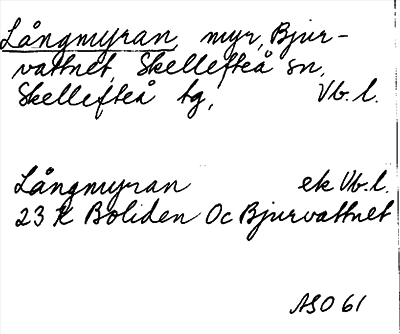 Långmyran, myr, Bjur-
vattnet, Skellefteå sn,
Skellefteå tg, Vb. l.
Långmyran ek Vb. l.
23 K Boliden Oc Bjurvattnet
ASO 61